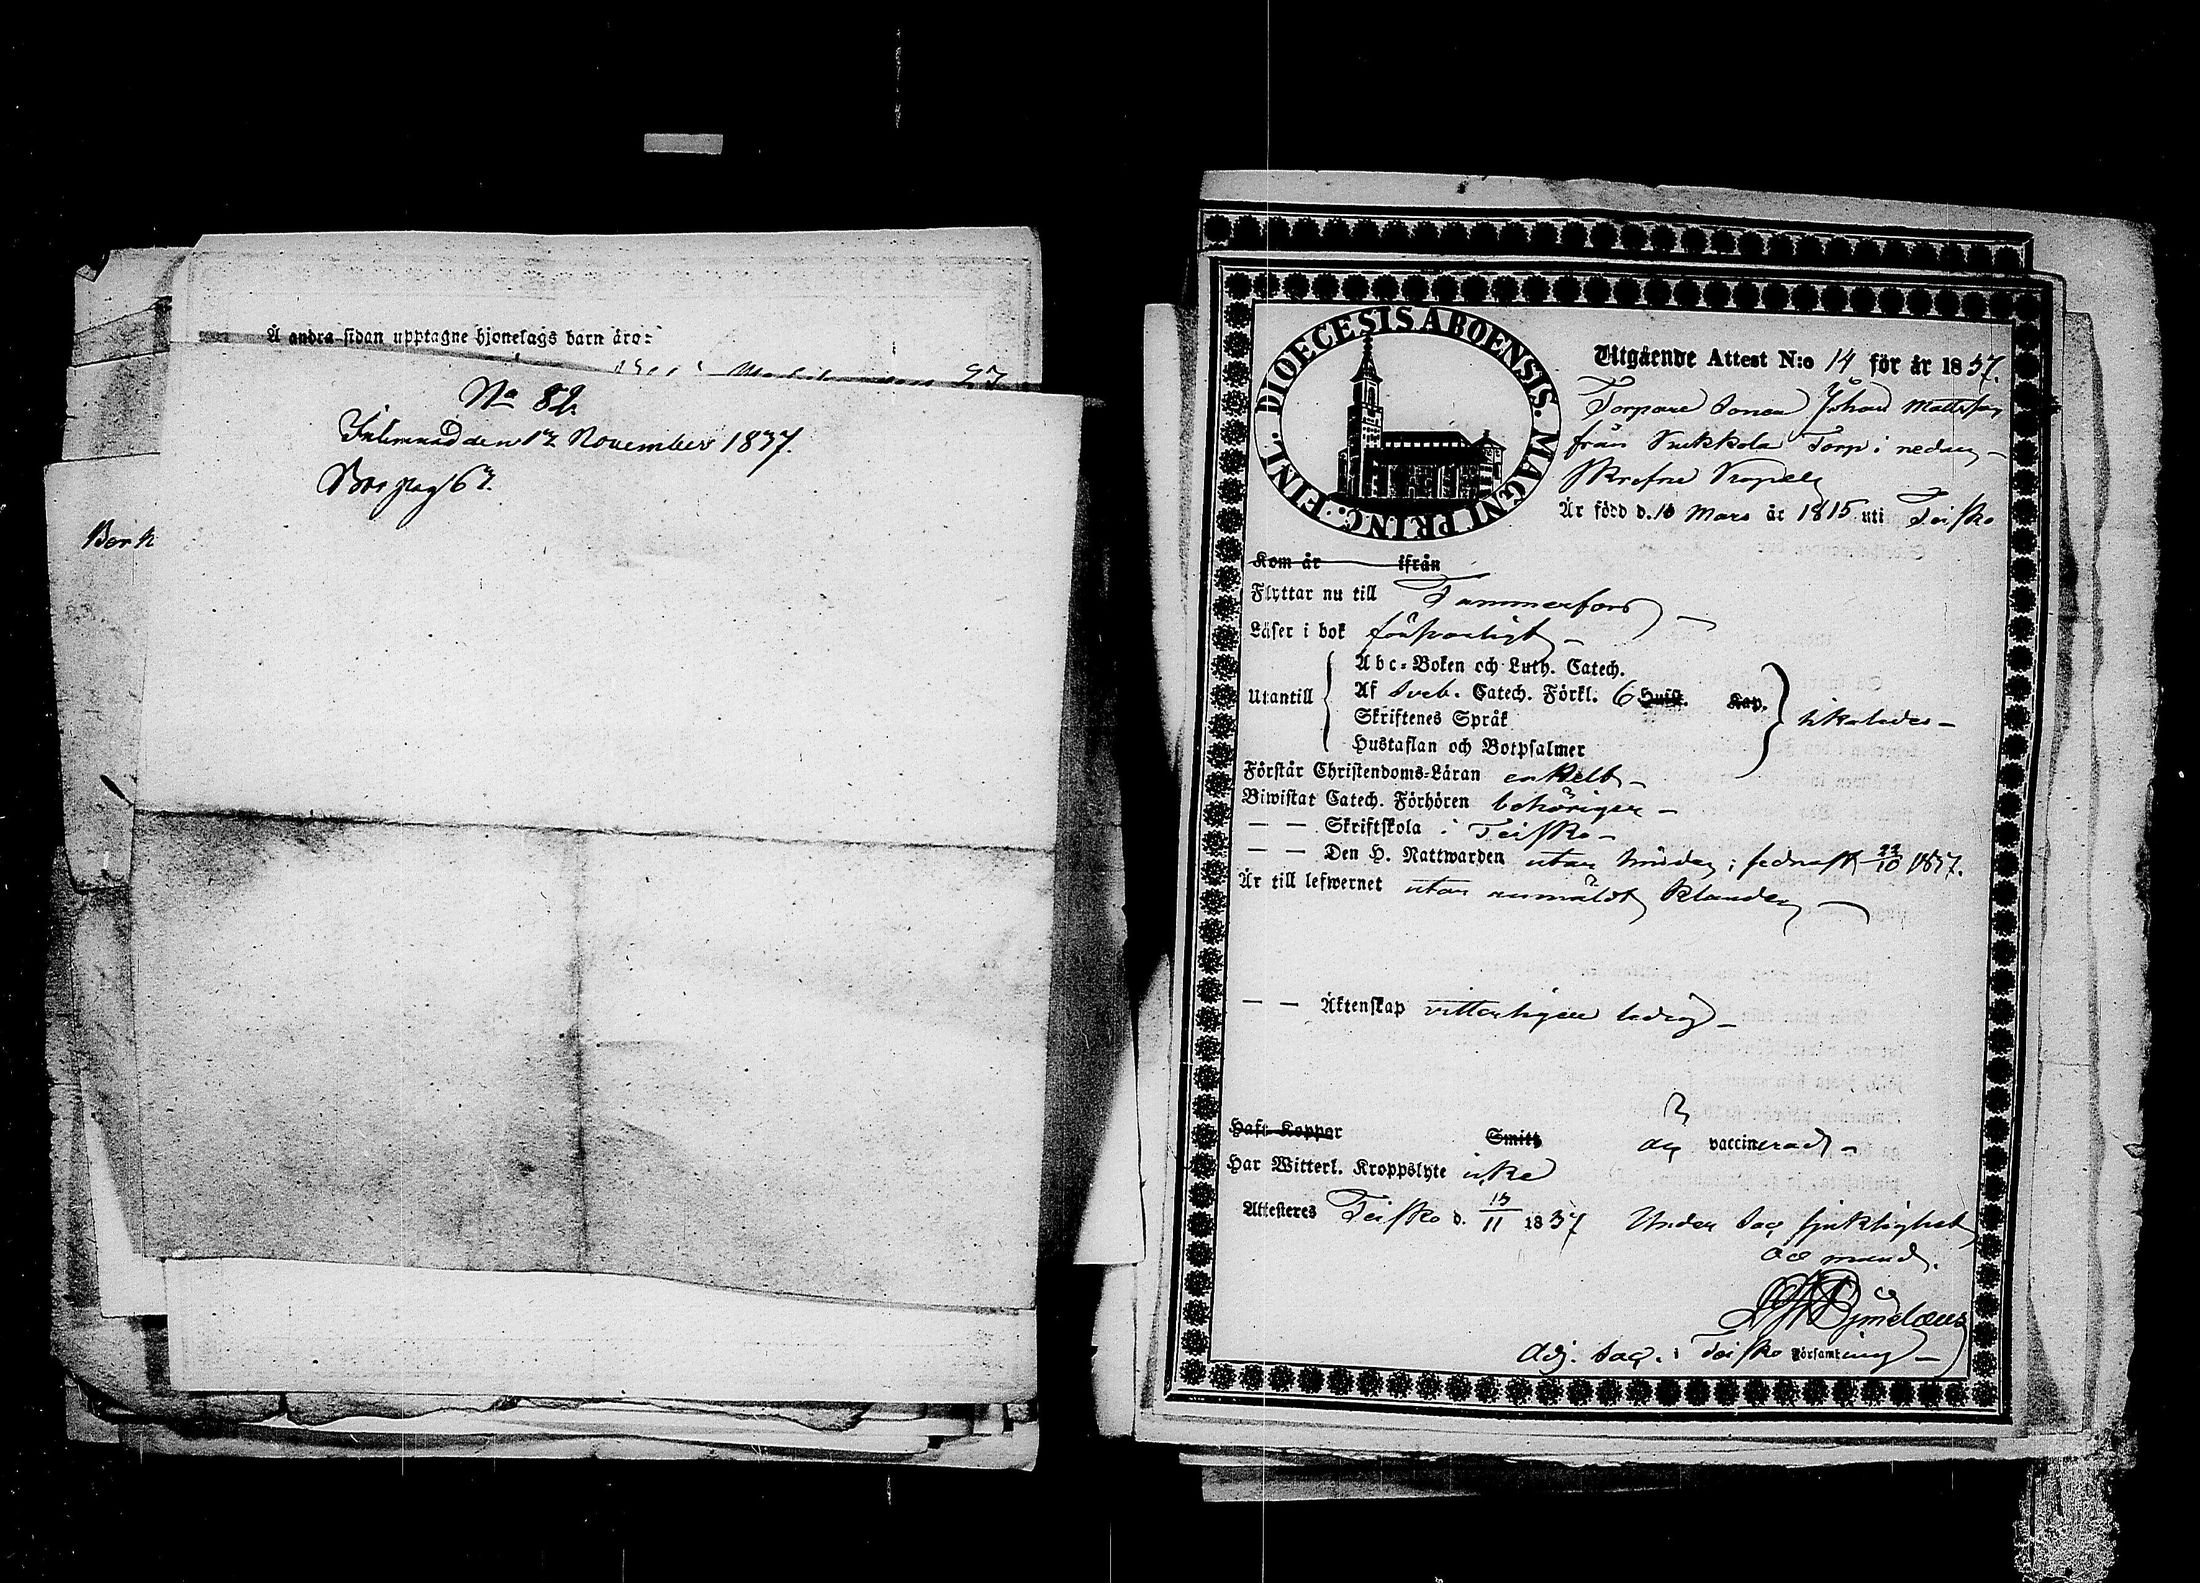 Å andra sidan upptagne hjonelags barn äro:
No 82.
Inlemnad den 17 November 1837.
Bor pag 67.
Berk
DIOECESIS ABOENSIS. MAGNI PRINC. FINL.
Utgående Attest N:o 14 för år 1837.
Torpare Sonen Johan Mattsson
från Torp i nedan
skrefne Capell
Är född d. 10 Mars år 1815 uti Teisko
Kom år ifrån
Flyttar nu till Tammerfors
Läser i bok försvarligt
Abc-Boken och Luth. Catech.
Utantill Af Sveb. Catech. Förkl. 6 Huist. Kap. likaledes
Skriftenes Språk
Hustaflan och Botpsalmer
Förstår Christendoms-Läran enkelt
Biwistat Catech. Förhören behörigen
— — Skriftskola i Teisko
— — Den H. Nattwarden utan hinder, sednast 22/10 1837.
Är till lefwernet utan anmäldt klander
— — Äktenskap vitterligen ledig
Haft Koppor Smitt vaccinerad
Har Witterl. Kroppslyte icke
Attesteres Teisko d. 13/11 1837 Under Sac. sjuklighet
Adj. Sac. i Teisko Församling